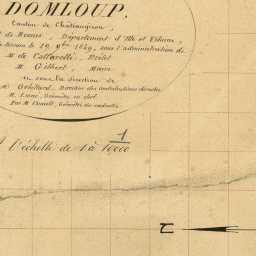 DOMLOUP.
Canton de Chateaugiron
t de Rennes, Département d'Ille et Vilaine,
le 19 9bre 1829, sous l'administration de
Mr de , Préfet
Mr Gilbert, Maire
et sous la direction de
Directeur des contributions directes
Mr Géomètre en chef
Par Mr Géomètre du cadastre
l'échelle de 1 à 10000
1